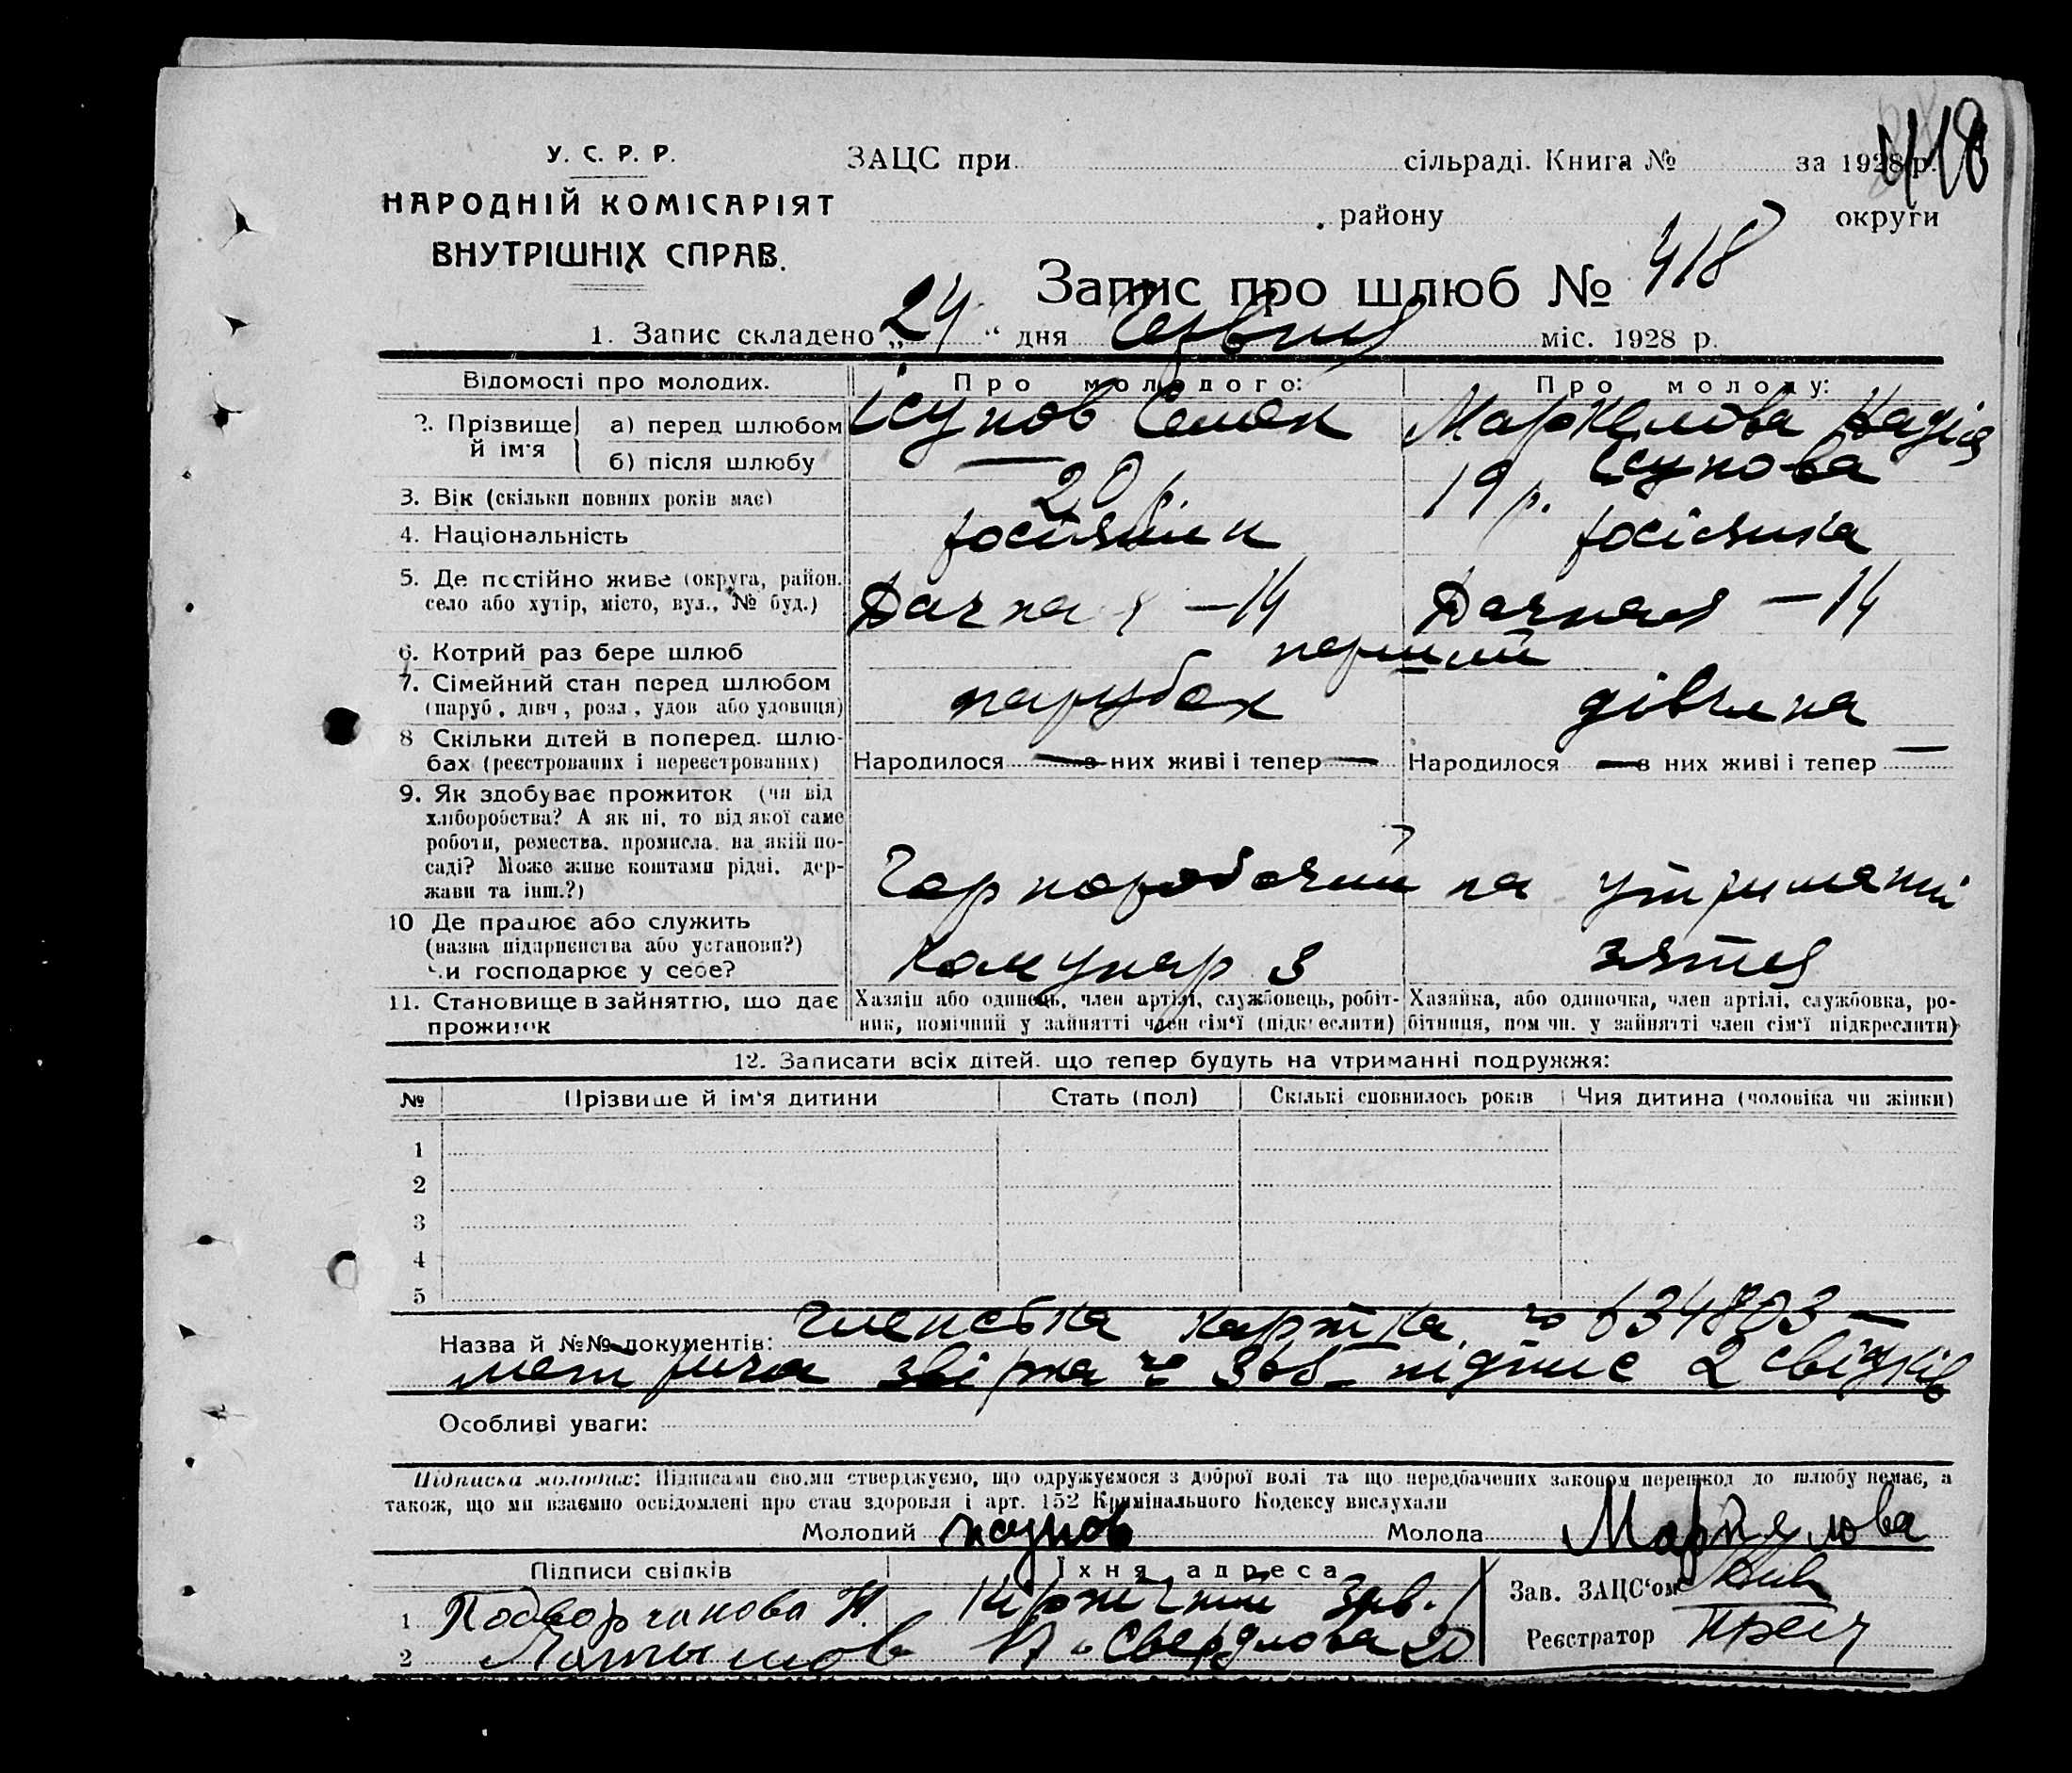 418
У. С. Р. Р.
НАРОДНІЙ КОМІСАРІЯТ
ВНУТРІШНІХ СПРАВ.
ЗАЦС при сільраді. Книга № за 1928 р.
району округи
Запис про шлюб № 418
1. Запис складено „24“ дня Червня міс. 1928 р.
Відомості про молодих. Про молодого: Про молоду:
2. Прізвище й ім'я а) перед шлюбом Ісупов Семен Маркелова Надія
б) після шлюбу — Ісупова
3. Вік (скільки повних років має) 20 р. 19 р.
4. Національність росіянин росіянка
5. Де постійно живе (округа, район. село або хутір, місто, вул., № буд.) Дачная — 14 Дачная — 14
6. Котрий раз бере шлюб перший
7. Сімейний стан перед шлюбом парубок дівчина
(паруб., дівч., розл., удов. або удовиця)
8 Скільки дітей в поперед. шлюбах (реєстрованих і нереєстрованих) Народилося — з них живі і тепер — Народилося — з них живі і тепер —
9. Як здобуває прожиток (чи від
хліборобства? А як ні, то від якої саме
роботи, ремества, промисла, на якій по-
саді? Може живе коштами рідні, дер-
жави та інш.?) Чорноробочий на утриманні
10 Де працює або служить
(назва підприємства або установи?) Комунар 3 зятя
Чи господарює у себе?
11. Становище в зайняттю, що дає прожиток
Хазяін або одинець, член артілі, службовець, робіт-
ник, помічний у зайнятті член сім'ї (підкреслити)
Хазяйка, або одиночка, член артілі, службовка, ро-
бітниця, помічн. у зайнятті член сім'ї підкреслити)
12. Записати всіх дітей, що тепер будуть на утриманні подружжя:
№ Прізвище й ім'я дитини Стать (пол) Скількі сповнилось років Чия дитина (чоловіка чи жінки)
1
2
3
4
5
Назва й №№ документів: Членська картка № 634803 —
метрична звірка № 365 — підпис 2 свідків
Особливі уваги:
Підписка молодих: Підписами своїми стверджуємо, що одружуємося з доброї волі та що передбачених законом перешкод до шлюбу немає, а
також, що ми взаємно освідомлені про стан здоровля і арт. 152 Кримінального Кодексу вислухали
Молодий Исупов Молода Маркелова
Підписи свідків Їхня адреса
1 Подворчанова Н. Кірпичний Зав. Зав. ЗАЦС'ом
2 Латышов Свердлова 20 Реєстратор